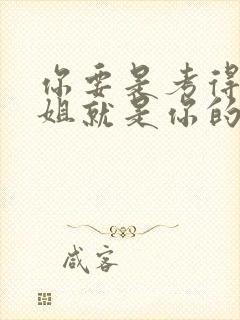 你要是考得
姐就是你的
咸客